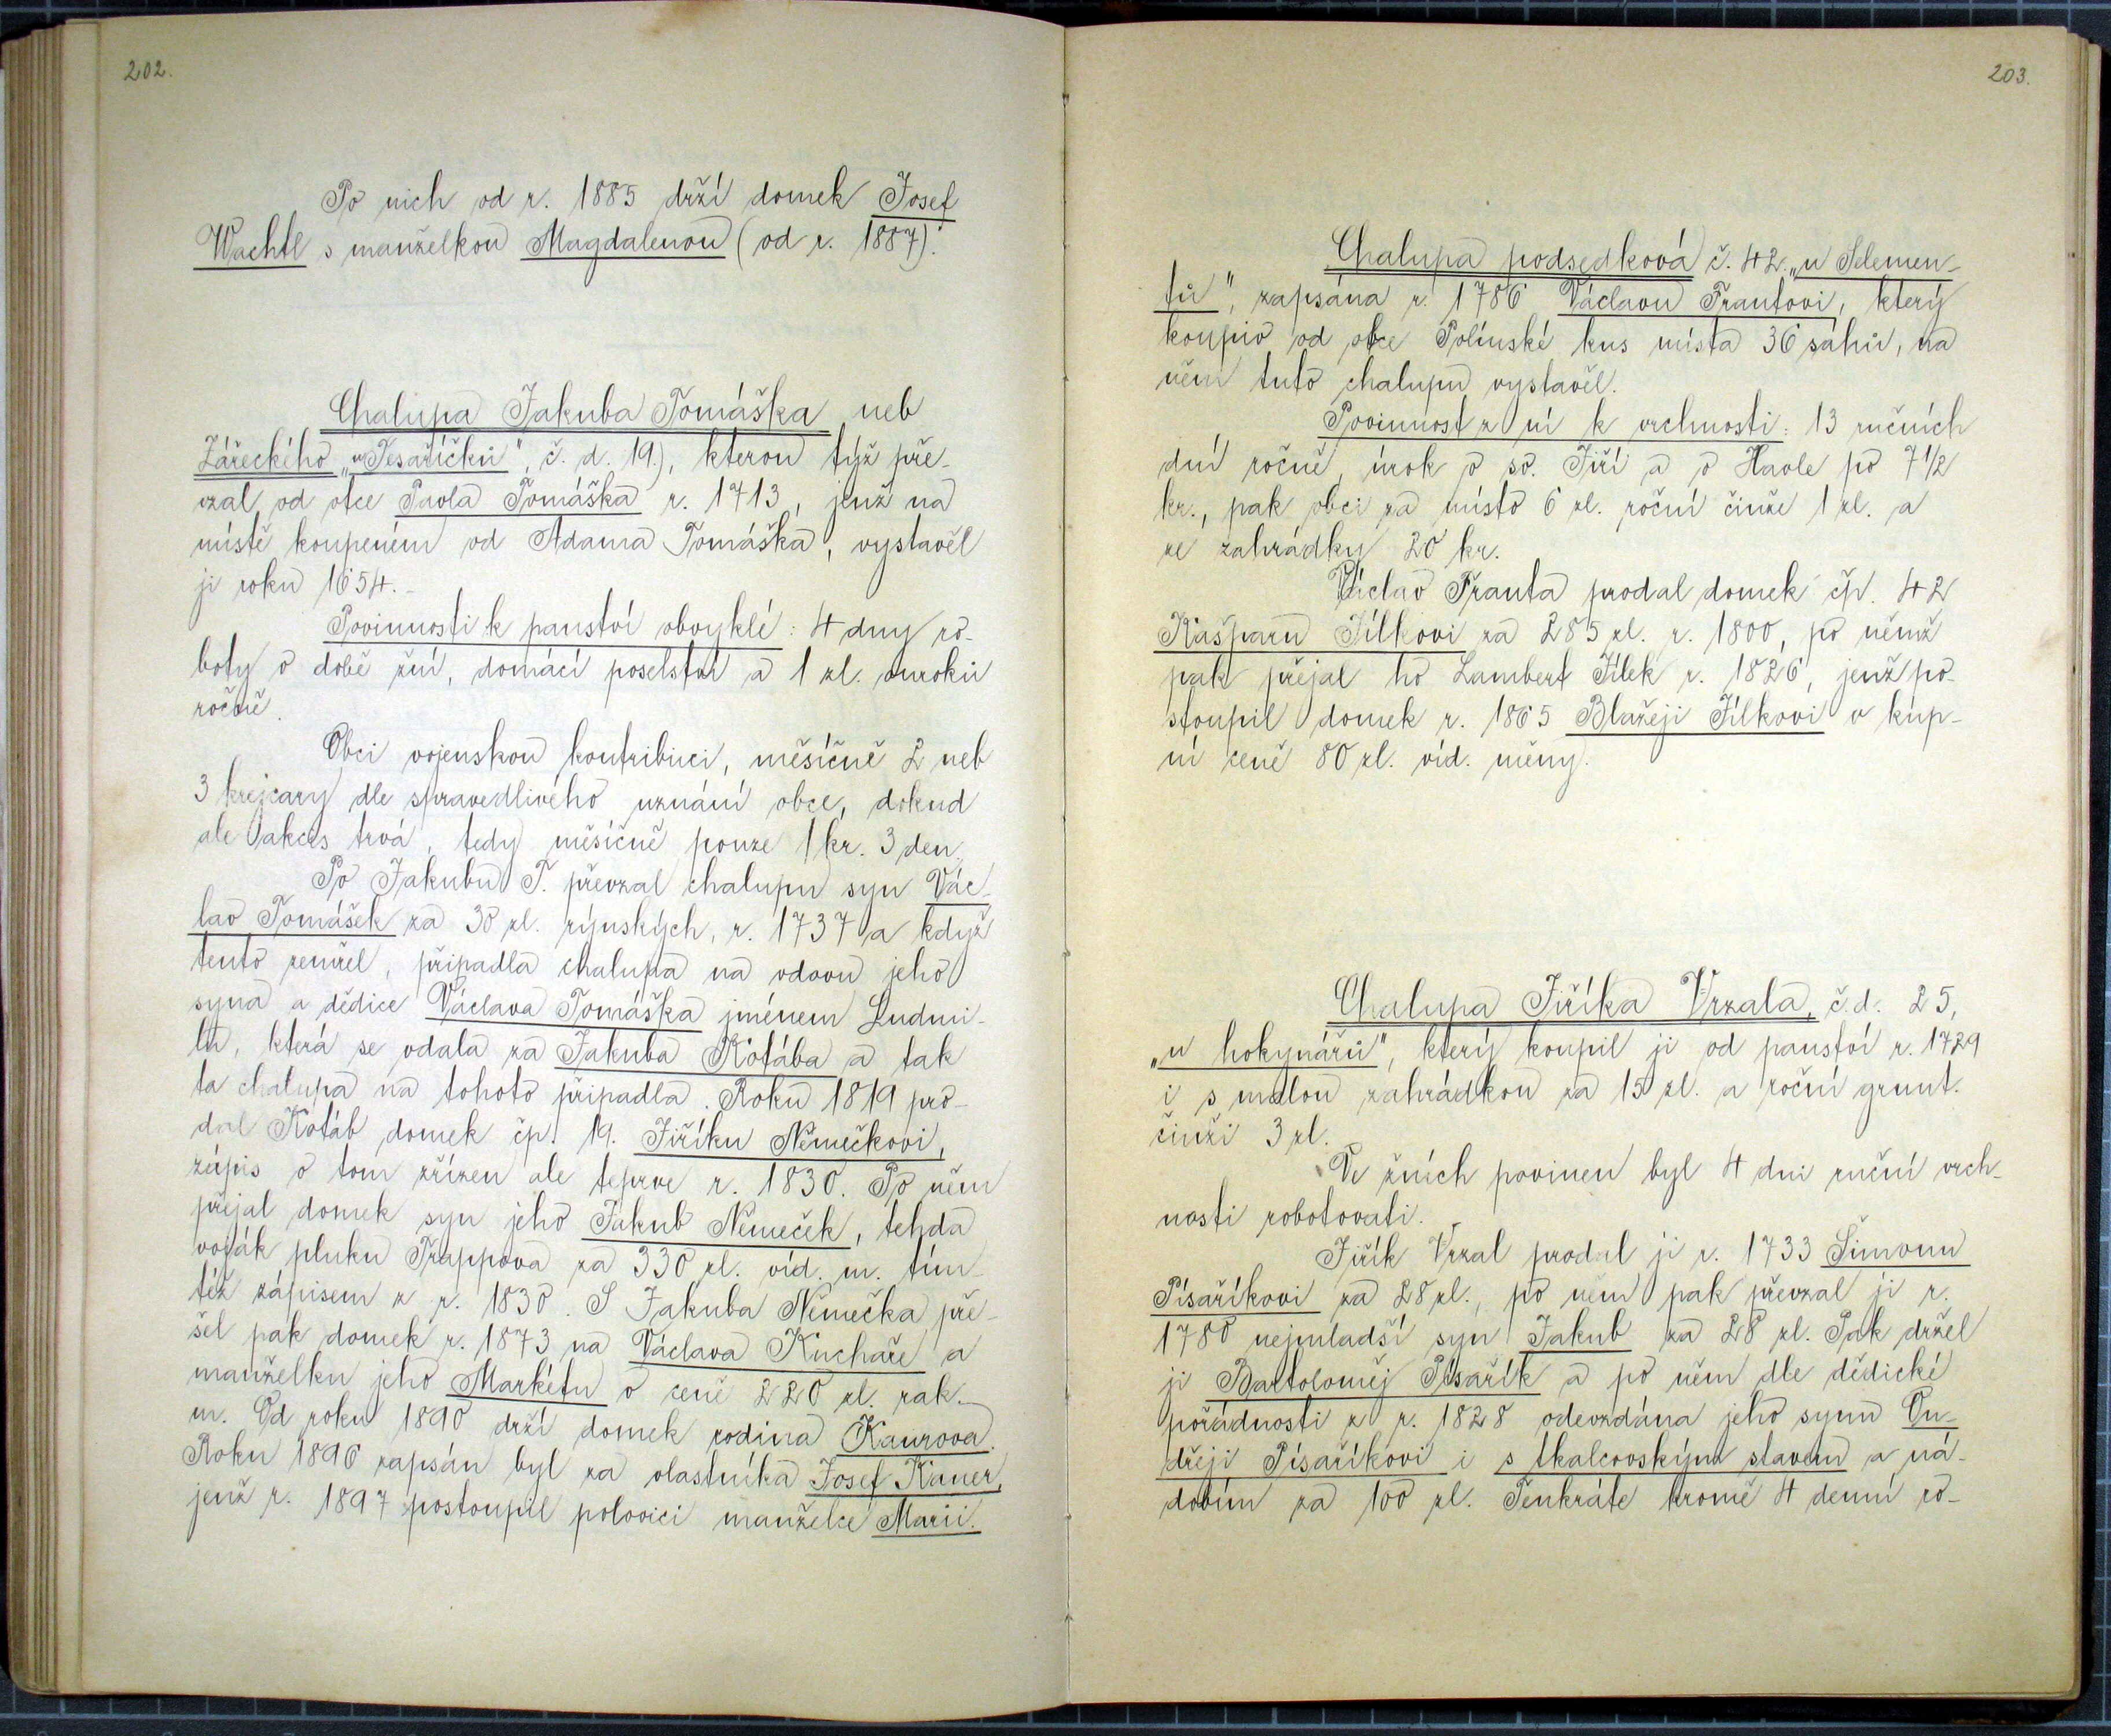 202.
Po nich od r. 1885 drží domek Josef
Wachtl s manželkou Magdalenou (od r. 1887).
Chalupa Jakuba Tomáška neb
Zářeckého „u Tesaříčků", č. d. 19.), kterou týž pře-
vzal od otce Pavla Tomáška r. 1713, jenž na
místě koupeném od Adama Tomáška, vystavěl
ji roku 1654.-
Povinnosti k panství obvyklé: 4 dny ro-
boty v době žní, domácí poselství a 1 zl. ouroků
ročně.
Obci vojenskou kontribuci, měsíčně 2 neb
3 krejcary dle spravedlivého uznání obce, dokud
ale akcis trvá, tedy měsíčně pouze 1 kr. 3 den.
Po Jakubu T. převzal chalupu syn Vác-
lav Tomášek za 30 zl. rýnských, r. 1737 a když
tento zemřel, připadla chalupa na vdovu jeho
syna a dědice Václava Tomáška jménem Ludmi-
lu, která se vdala za Jakuba Kotába a tak
ta chalupa na tohoto připadla. Roku 1819 pro-
dal Kotáb domek čp. 19. Jiříku Němečkovi,
zápis o tom zřízen ale teprve r. 1830. Po něm
přejal domek syn jeho Jakub Němeček, tehda
voják pluku Trappova za 330 zl. víd. m. tím-
též zápisem z r. 1830. S Jakuba Němečka pře-
šel pak domek r. 1873 na Václava Kuchaře a
manželku jeho Markétu v ceně 220 zl. rak.
m. Od roku 1890 drží domek rodina Kaurova.
Roku 1896 zapsán byl za vlastníka Josef Kauer,
jenž r. 1897 postoupil polovici manželce Marii.
203.
Chalupa podsedková č. 42. „u Selemen-
tů", zapsána r. 1786 Václavu Frantovi, který
koupiv od obce Polínské kus místa 36 sáhů, na
něm tuto chalupu vystavěl.
Povinnost z ní k vrchnosti: 13 ručních
dní ročně, úrok o sv. Jiří a o Havle po 7 1/2
kr., pak obci za místo 6 zl. roční činže 1 zl. a
ze zahrádky 20 kr.
Václav Franta prodal domek čp. 42
Kašparu Jílkovi za 285 zl. r. 1800, po němž
pak přejal ho Lambert Jílek r. 1826, jenž po-
stoupil domek r. 1865 Blažeji Jílkovi v kup-
ní ceně 80 zl. víd. měny.
Chalupa Jiříka Vrzala, č. d. 25,
„u hokynářů", který koupil ji od panství r. 1729
i s malou zahrádkou za 15 zl. a roční grunt.
činži 3 zl.
Ve žních povinen byl 4 dni ruční vrch-
nosti robotovati.
Jiřík Vrzal prodal ji r. 1733 Šimonu
Písaříkovi za 28 zl., po něm pak převzal ji r.
1780 nejmladší syn Jakub za 28 zl. Pak držel
ji Bartoloměj Písařík a po něm dle dědické
pořádnosti z r. 1828 odevzdána jeho synu On-
dřeji Písaříkovi i s tkalcovským stavem a ná-
dobím za 100 zl. Tenkráte kromě 4 denní ro-